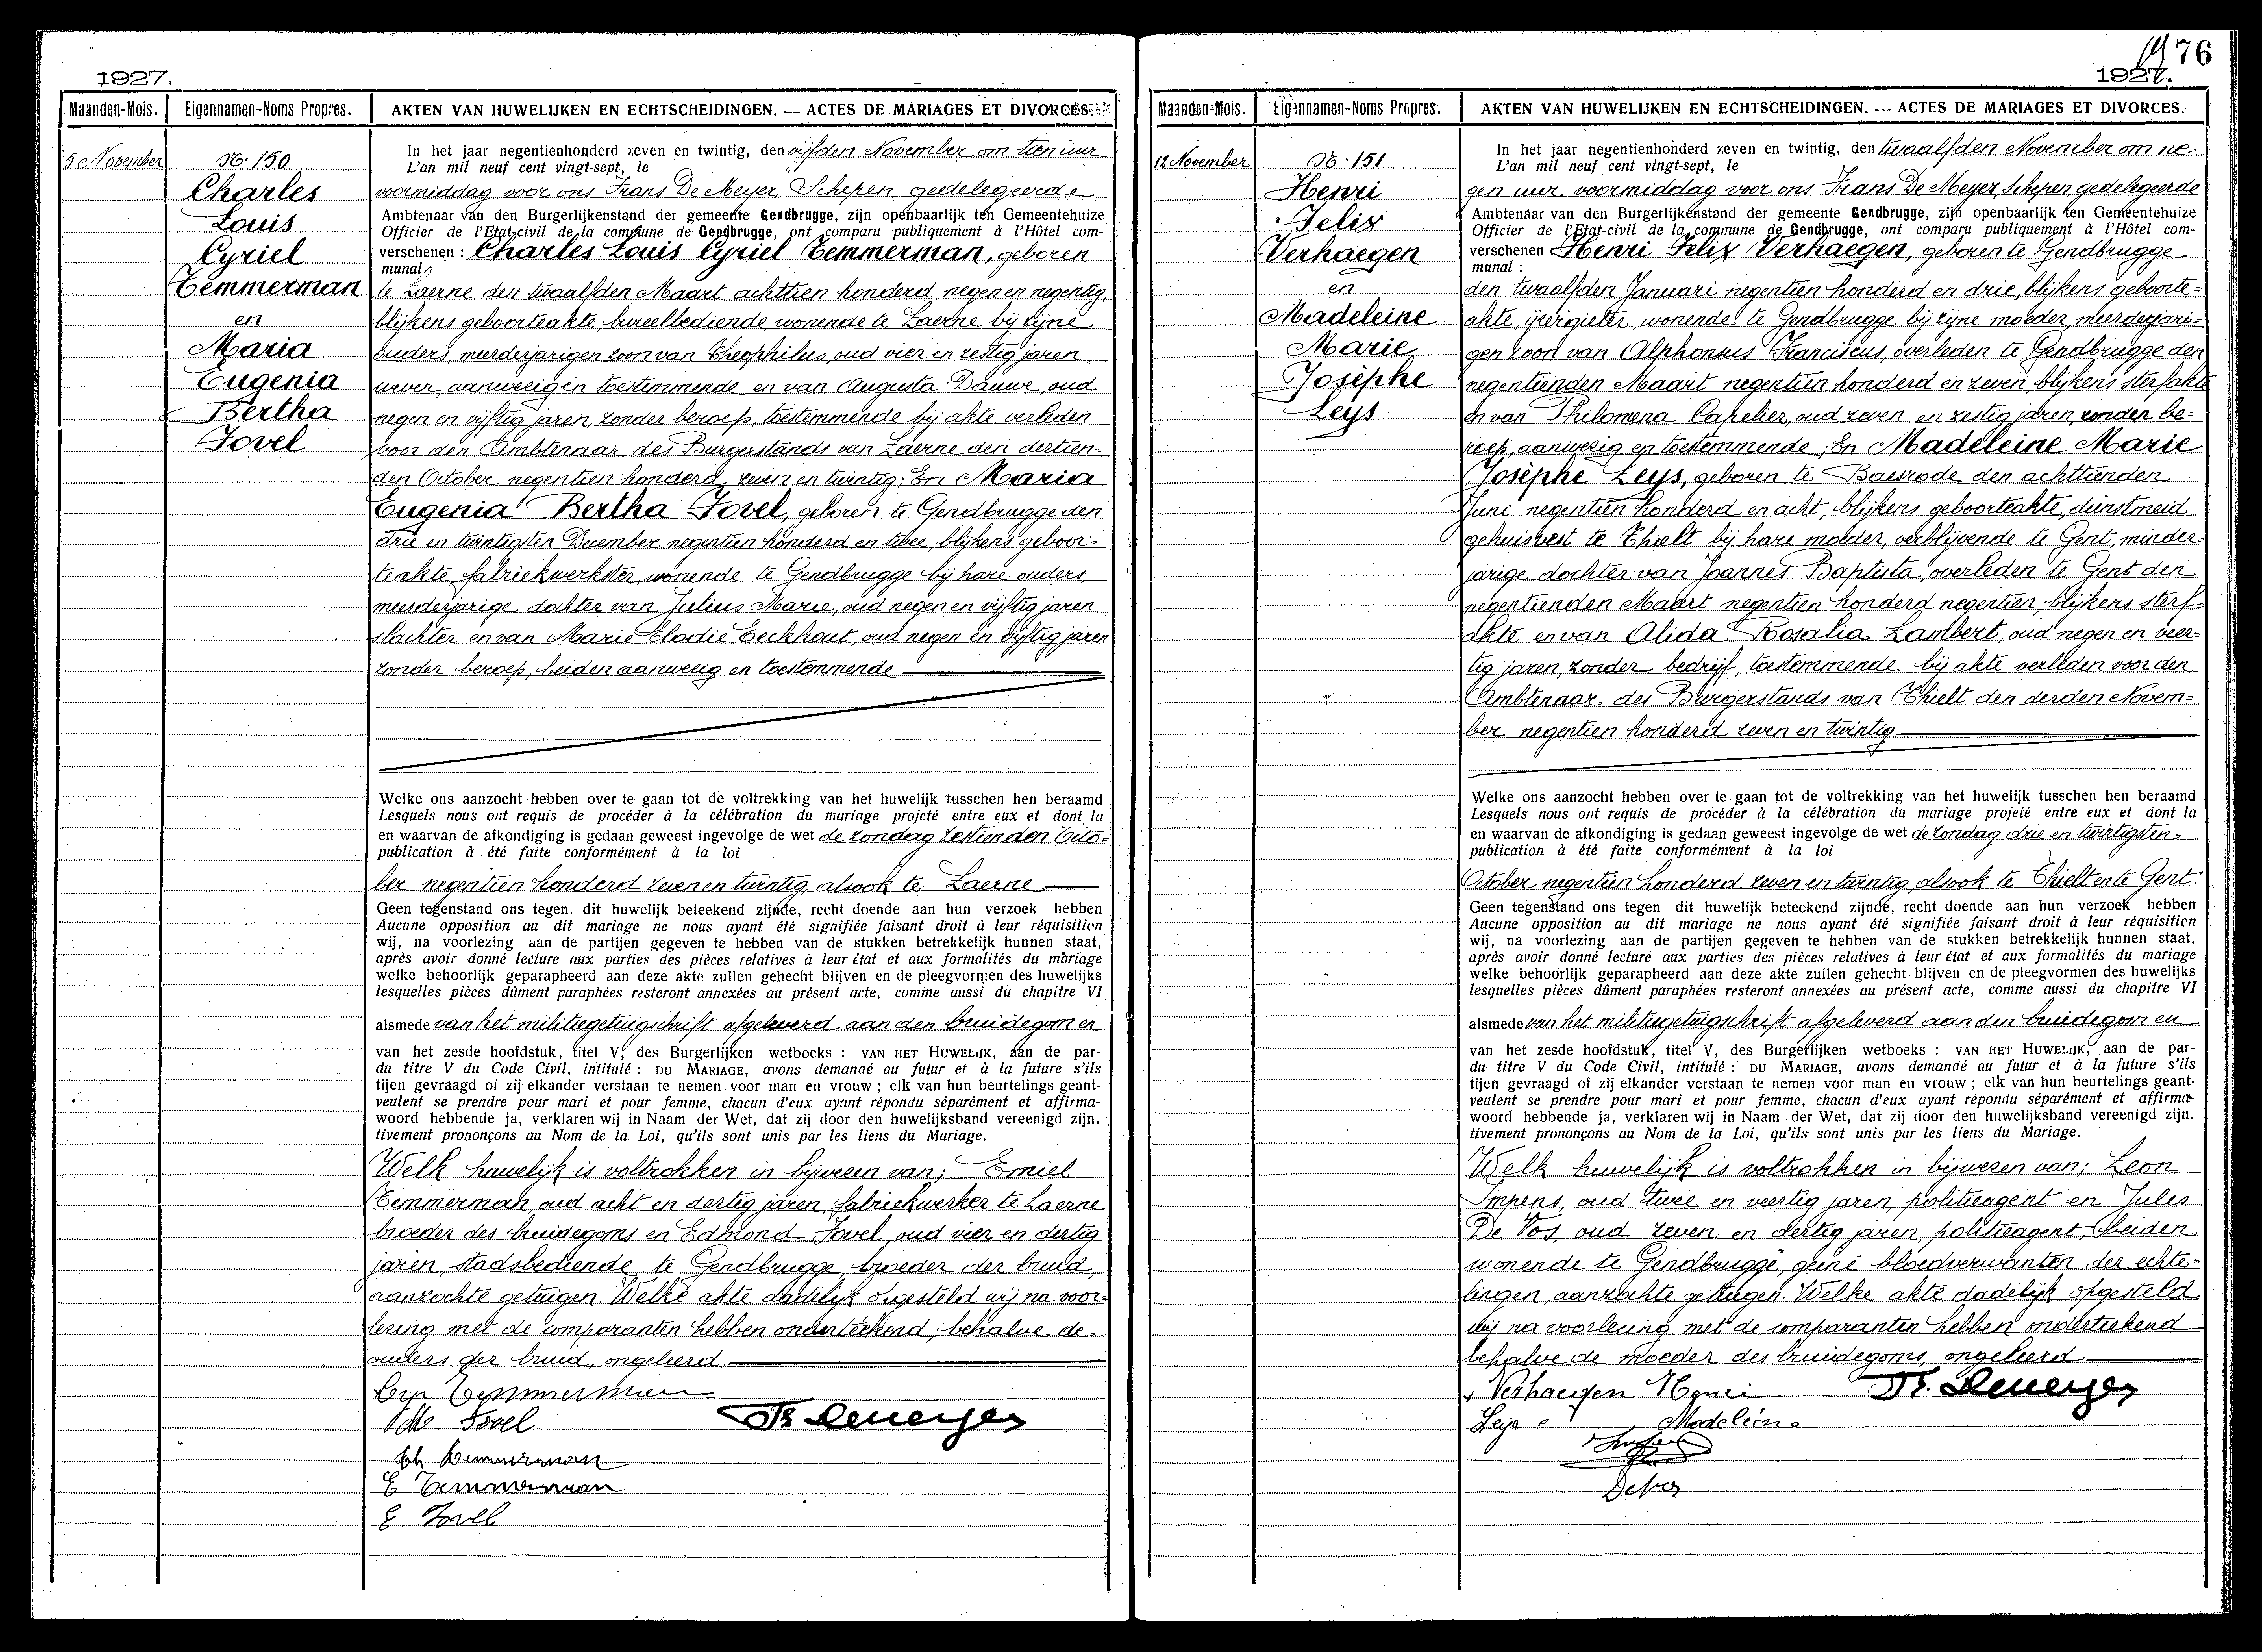 1927.
Maanden-Mois.
Eigennamen-Noms Propres.
AKTEN VAN HUWELIJKEN EN ECHTSCHEIDINGEN. — ACTES DE MARIAGES ET DIVORCES.
5 November
No. 150
Charles
Louis
Cyriel
Temmerman
en
Maria
Eugenia
Bertha
Jovel
In het jaar negentienhonderd zeven en twintig, den vijfden November om tien uur
L'an mil neuf cent vingt-sept, le
voormiddag voor ons Frans De Meyer, Schepen gedelegeerde
Ambtenaar van den Burgerlijkenstand der gemeente Gendbrugge, zijn openbaarlijk ten Gemeentehuize
Officier de l'Etat-civil de la commune de Gendbrugge, ont comparu publiquement à l'Hôtel com-
verschenen : Charles Louis Cyriel Temmerman, geboren
munal :
te Laerne den twaalfden Maart achttien honderd negen en negentig,
blijkens geboorteakte, bureelbediende, wonende te Laerne bij zijne
ouders, meerderjarigen zoon van Theophilus, oud vier en zestig jaren
wever, aanwezig en toestemmende en van Augusta Dauwe, oud
negen en vijftig jaren, zonder beroep, toestemmende bij akte verleden
voor den Ambtenaar des Burgerstands van Laerne den dertien-
den October negentien honderd zeven en twintig; En Maria
Eugenia Bertha Jovel, geboren te Gendbrugge den
drie en twintigsten December negentien honderd en twee, blijkens geboor-
teakte, fabriekwerkster, wonende te Gendbrugge bij hare ouders,
meerderjarige dochter van Julius Marie, oud negen en vijftig jaren
slachter en van Marie Elodie Eeckhout, oud negen en vijftig jaren
zonder beroep, beiden aanwezig en toestemmende
Welke ons aanzocht hebben over te gaan tot de voltrekking van het huwelijk tusschen hen beraamd
Lesquels nous ont requis de procéder à la célébration du mariage projeté entre eux et dont la
en waarvan de afkondiging is gedaan geweest ingevolge de wet de zondag zestienden Octo-
publication à été faite conformément à la loi
ber negentien honderd zeven en twintig, alsook te Laerne
Geen tegenstand ons tegen dit huwelijk beteekend zijnde, recht doende aan hun verzoek hebben
Aucune opposition au dit mariage ne nous ayant été signifiée faisant droit à leur réquisition
wij, na voorlezing aan de partijen gegeven te hebben van de stukken betrekkelijk hunnen staat,
après avoir donné lecture aux parties des pièces relatives à leur état et aux formalités du mariage
welke behoorlijk geparapheerd aan deze akte zullen gehecht blijven en de pleegvormen des huwelijks
lesquelles pièces dûment paraphées resteront annexées au présent acte, comme aussi du chapitre VI
alsmede van het militiegetuigschrift afgeleverd aan den bruidegom en
van het zesde hoofdstuk, titel V, des Burgerlijken wetboeks : VAN HET HUWELIJK, aan de par-
du titre V du Code Civil, intitulé : DU MARIAGE, avons demandé au futur et à la future s'ils
tijen gevraagd of zij elkander verstaan te nemen voor man en vrouw ; elk van hun beurtelings geant-
veulent se prendre pour mari et pour femme, chacun d'eux ayant répondu séparément et affirma-
woord hebbende ja, verklaren wij in Naam der Wet, dat zij door den huwelijksband vereenigd zijn.
tivement prononçons au Nom de la Loi, qu'ils sont unis par les liens du Mariage.
Welk huwelijk is voltrokken in bijwezen van; Emiel
Temmerman, oud acht en dertig jaren, fabriekwerker te Laerne
broeder des bruidegoms en Edmond Jovel, oud vier en dertig
jaren, stadsbediende te Gendbrugge, broeder der bruid,
aanzochte getuigen. Welke akte dadelijk opgesteld wij na voor-
lezing met de comparanten hebben onderteekend, behalve de
ouders der bruid, ongeleerd.
Temmerman
Jovel
Fr. Demeyer
Th Temmerman
E Temmerman
E Jovel
76
1927.
Maanden-Mois.
Eigennamen-Noms Propres.
AKTEN VAN HUWELIJKEN EN ECHTSCHEIDINGEN. — ACTES DE MARIAGES ET DIVORCES.
12 November
No. 151
Henri
Felix
Verhaegen
en
Madeleine
Marie
Josèphe
Leys
In het jaar negentienhonderd zeven en twintig, den twaalfden November om ne-
L'an mil neuf cent vingt-sept, le
gen uur voormiddag voor ons Frans De Meyer, Schepen gedelegeerde
Ambtenaar van den Burgerlijkenstand der gemeente Gendbrugge, zijn openbaarlijk ten Gemeentehuize
Officier de l'Etat-civil de la commune de Gendbrugge, ont comparu publiquement à l'Hôtel com-
verschenen : Henri Felix Verhaegen, geboren te Gendbrugge
munal :
den twaalfden Januari negentien honderd en drie, blijkens geboorte-
akte, ijzergieter, wonende te Gendbrugge bij zijne moeder, meerderjari-
gen zoon van Alphonsus Franciscus, overleden te Gendbrugge den
negentienden Maart negentien honderd en zeven, blijkens sterfakte
en van Philomena Capelier, oud zeven en zestig jaren, zonder be-
roep, aanwezig en toestemmende; En Madeleine Marie
Josèphe Leys, geboren te Baesrode den achttienden
Juni negentien honderd en acht, blijkens geboorteakte, dienstmeid
gehuisvest te Thielt bij hare moeder, verblijvende te Gent, minder-
jarige dochter van Joannes Baptista, overleden te Gent den
negentienden Maart negentien honderd negentien, blijkens sterf-
akte en van Alida Rosalia Lambert, oud negen en veer-
tig jaren, zonder bedrijf, toestemmende bij akte verleden voor den
Ambtenaar des Burgerstands van Thielt den derden Novem-
ber negentien honderd zeven en twintig
Welke ons aanzocht hebben over te gaan tot de voltrekking van het huwelijk tusschen hen beraamd
Lesquels nous ont requis de procéder à la célébration du mariage projeté entre eux et dont la
en waarvan de afkondiging is gedaan geweest ingevolge de wet de zondag drie en twintigsten
publication à été faite conformément à la loi
October negentien honderd zeven en twintig, alsook te Thielt en te Gent.
Geen tegenstand ons tegen dit huwelijk beteekend zijnde, recht doende aan hun verzoek hebben
Aucune opposition au dit mariage ne nous ayant été signifiée faisant droit à leur réquisition
wij, na voorlezing aan de partijen gegeven te hebben van de stukken betrekkelijk hunnen staat,
après avoir donné lecture aux parties des pièces relatives à leur état et aux formalités du mariage
welke behoorlijk geparapheerd aan deze akte zullen gehecht blijven en de pleegvormen des huwelijks
lesquelles pièces dûment paraphées resteront annexées au présent acte, comme aussi du chapitre VI
alsmede van het militiegetuigschrift afgeleverd aan den bruidegom en
van het zesde hoofdstuk, titel V, des Burgerlijken wetboeks : VAN HET HUWELIJK, aan de par-
du titre V du Code Civil, intitulé : DU MARIAGE, avons demandé au futur et à la future s'ils
tijen gevraagd of zij elkander verstaan te nemen voor man en vrouw ; elk van hun beurtelings geant-
veulent se prendre pour mari et pour femme, chacun d'eux ayant répondu séparément et affirma-
woord hebbende ja, verklaren wij in Naam der Wet, dat zij door den huwelijksband vereenigd zijn.
tivement prononçons au Nom de la Loi, qu'ils sont unis par les liens du Mariage.
Welk huwelijk is voltrokken in bijwezen van; Leon
Impens, oud twee en veertig jaren, politieagent en Jules
De Vos, oud zeven en dertig jaren, politieagent, beiden
wonende te Gendbrugge, geene bloedverwanten der echte-
lingen, aanzochte getuigen. Welke akte dadelijk opgesteld
wij na voorlezing met de comparanten hebben onderteekend
behalve de moeder des bruidegoms, ongeleerd.
Verhaegen Henri
Fr. Demeyer
Leys Madeleine
Devos